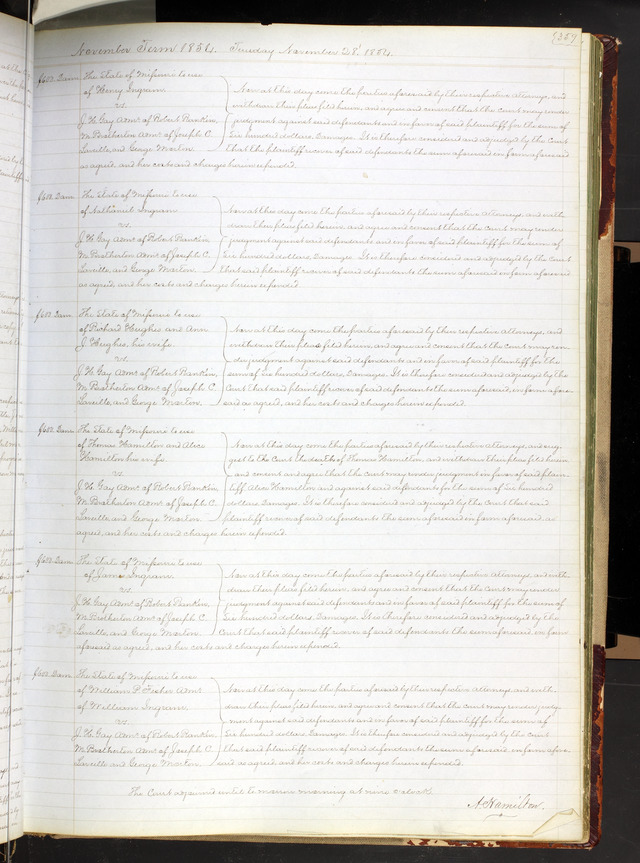 November Term 1854. Tuesday November 28th 1854.
359
$600 Dam The State of Missouri to use
of Henry Ingram
vs.
J. H. Gay Admr. of Robert Rankin,
M. Brotherton Admr. of Joseph C.
Laveille, and George Morton.
Now at this day come the parties aforesaid by their respective Attorneys, and
withdraw their pleas filed herein, and agree and consent that the Court may render
judgment against said defendants and in favor of said plaintiff for the sum of
six hundred dollars Damages. It is therefore considered and adjudged by the Court
that the plaintiff recover of said defendants the sum aforesaid in form aforesaid
as agreed, and her costs and charges herein expended.
$600 Dam The State of Missouri to use
of Nathaniel Ingram
vs.
J. H. Gay Admr. of Robert Rankin,
M. Brotherton Admr. of Joseph C.
Laveille, and George Morton.
Now at this day come the parties aforesaid by their respective Attorneys, and with-
draw their pleas filed herein, and agree and consent that the Court may render
judgment against said defendants and in favor of said plaintiff for the sum of
six hundred dollars, Damages. It is therefore considered and adjudged by the Court
that said plaintiff recover of said defendants the sum aforesaid in form aforesaid
as agreed, and her costs and charges herein expended.
$600 Dam The State of Missouri to use
of Richard Hughes and Ann
J. Hughes, his wife.
vs.
J. H. Gay Admr. of Robert Rankin,
M. Brotherton Admr. of Joseph C.
Laveille, and George Morton.
Now at this day come the parties aforesaid by their respective Attorneys, and
withdraw their pleas filed herein, and agree and consent that the Court may ren-
der judgment against said defendants and in favor of said plaintiff for the
sum of six hundred dollars, Damages. It is therefore considered and adjudged by the
Court that said plaintiff recover of said defendants the sum aforesaid, in form afore-
said as agreed, and her costs and charges herein expended.
$600 Dam The State of Missouri to use
of Thomas Hamilton and Alice
Hamilton his wife.
vs.
J. H. Gay Admr. of Robert Rankin,
M. Brotherton Admr. of Joseph C.
Laveille and George Morton.
Now at this day come the parties aforesaid by their respective Attorneys, and sug-
gest to the Court the death of Thomas Hamilton, and withdraw their pleas filed herein
and consent and agree that the Court may render judgment in favor of said plain-
tiff Alice Hamilton and against said defendants for the sum of six hundred
dollars Damages. It is therefore considered and adjudged by the Court that said
plaintiff recover of said defendants the sum aforesaid in form aforesaid, as
agreed, and her costs and charges herein expended.
$600 Dam The State of Missouri to use
of James Ingram
vs.
J. H. Gay Admr. of Robert Rankin,
M. Brotherton Admr. of Joseph C.
Laveille, and George Morton.
Now at this day come the parties aforesaid by their respective Attorneys, and with-
draw their pleas filed herein, and agree and consent that the Court may render
judgment against said defendants and in favor of said plaintiff for the sum of
six hundred dollars Damages. It is therefore considered and adjudged by the
Court that said plaintiff recover of said defendants the sum aforesaid, in form
aforesaid as agreed, and her costs and charges herein expended.
$600 Dam The State of Missouri to use
of William P. Fisher Admr.
of William Ingram
vs.
J. H. Gay Admr. of Robert Rankin,
M. Brotherton Admr. of Joseph C.
Laveille and George Morton.
Now at this day come the parties aforesaid by their respective Attorneys, and with-
draw their pleas filed herein, and agree and consent that the Court may render judg-
ment against said defendants and in favor of said plaintiff for the sum of
six hundred dollars Damages. It is therefore considered and adjudged by the Court
that said plaintiff recover of said defendants the sum aforesaid, in form afore-
said as agreed and her costs and charges herein expended.
The Court adjourned until to morrow morning at nine o'clock.
A. Hamilton.